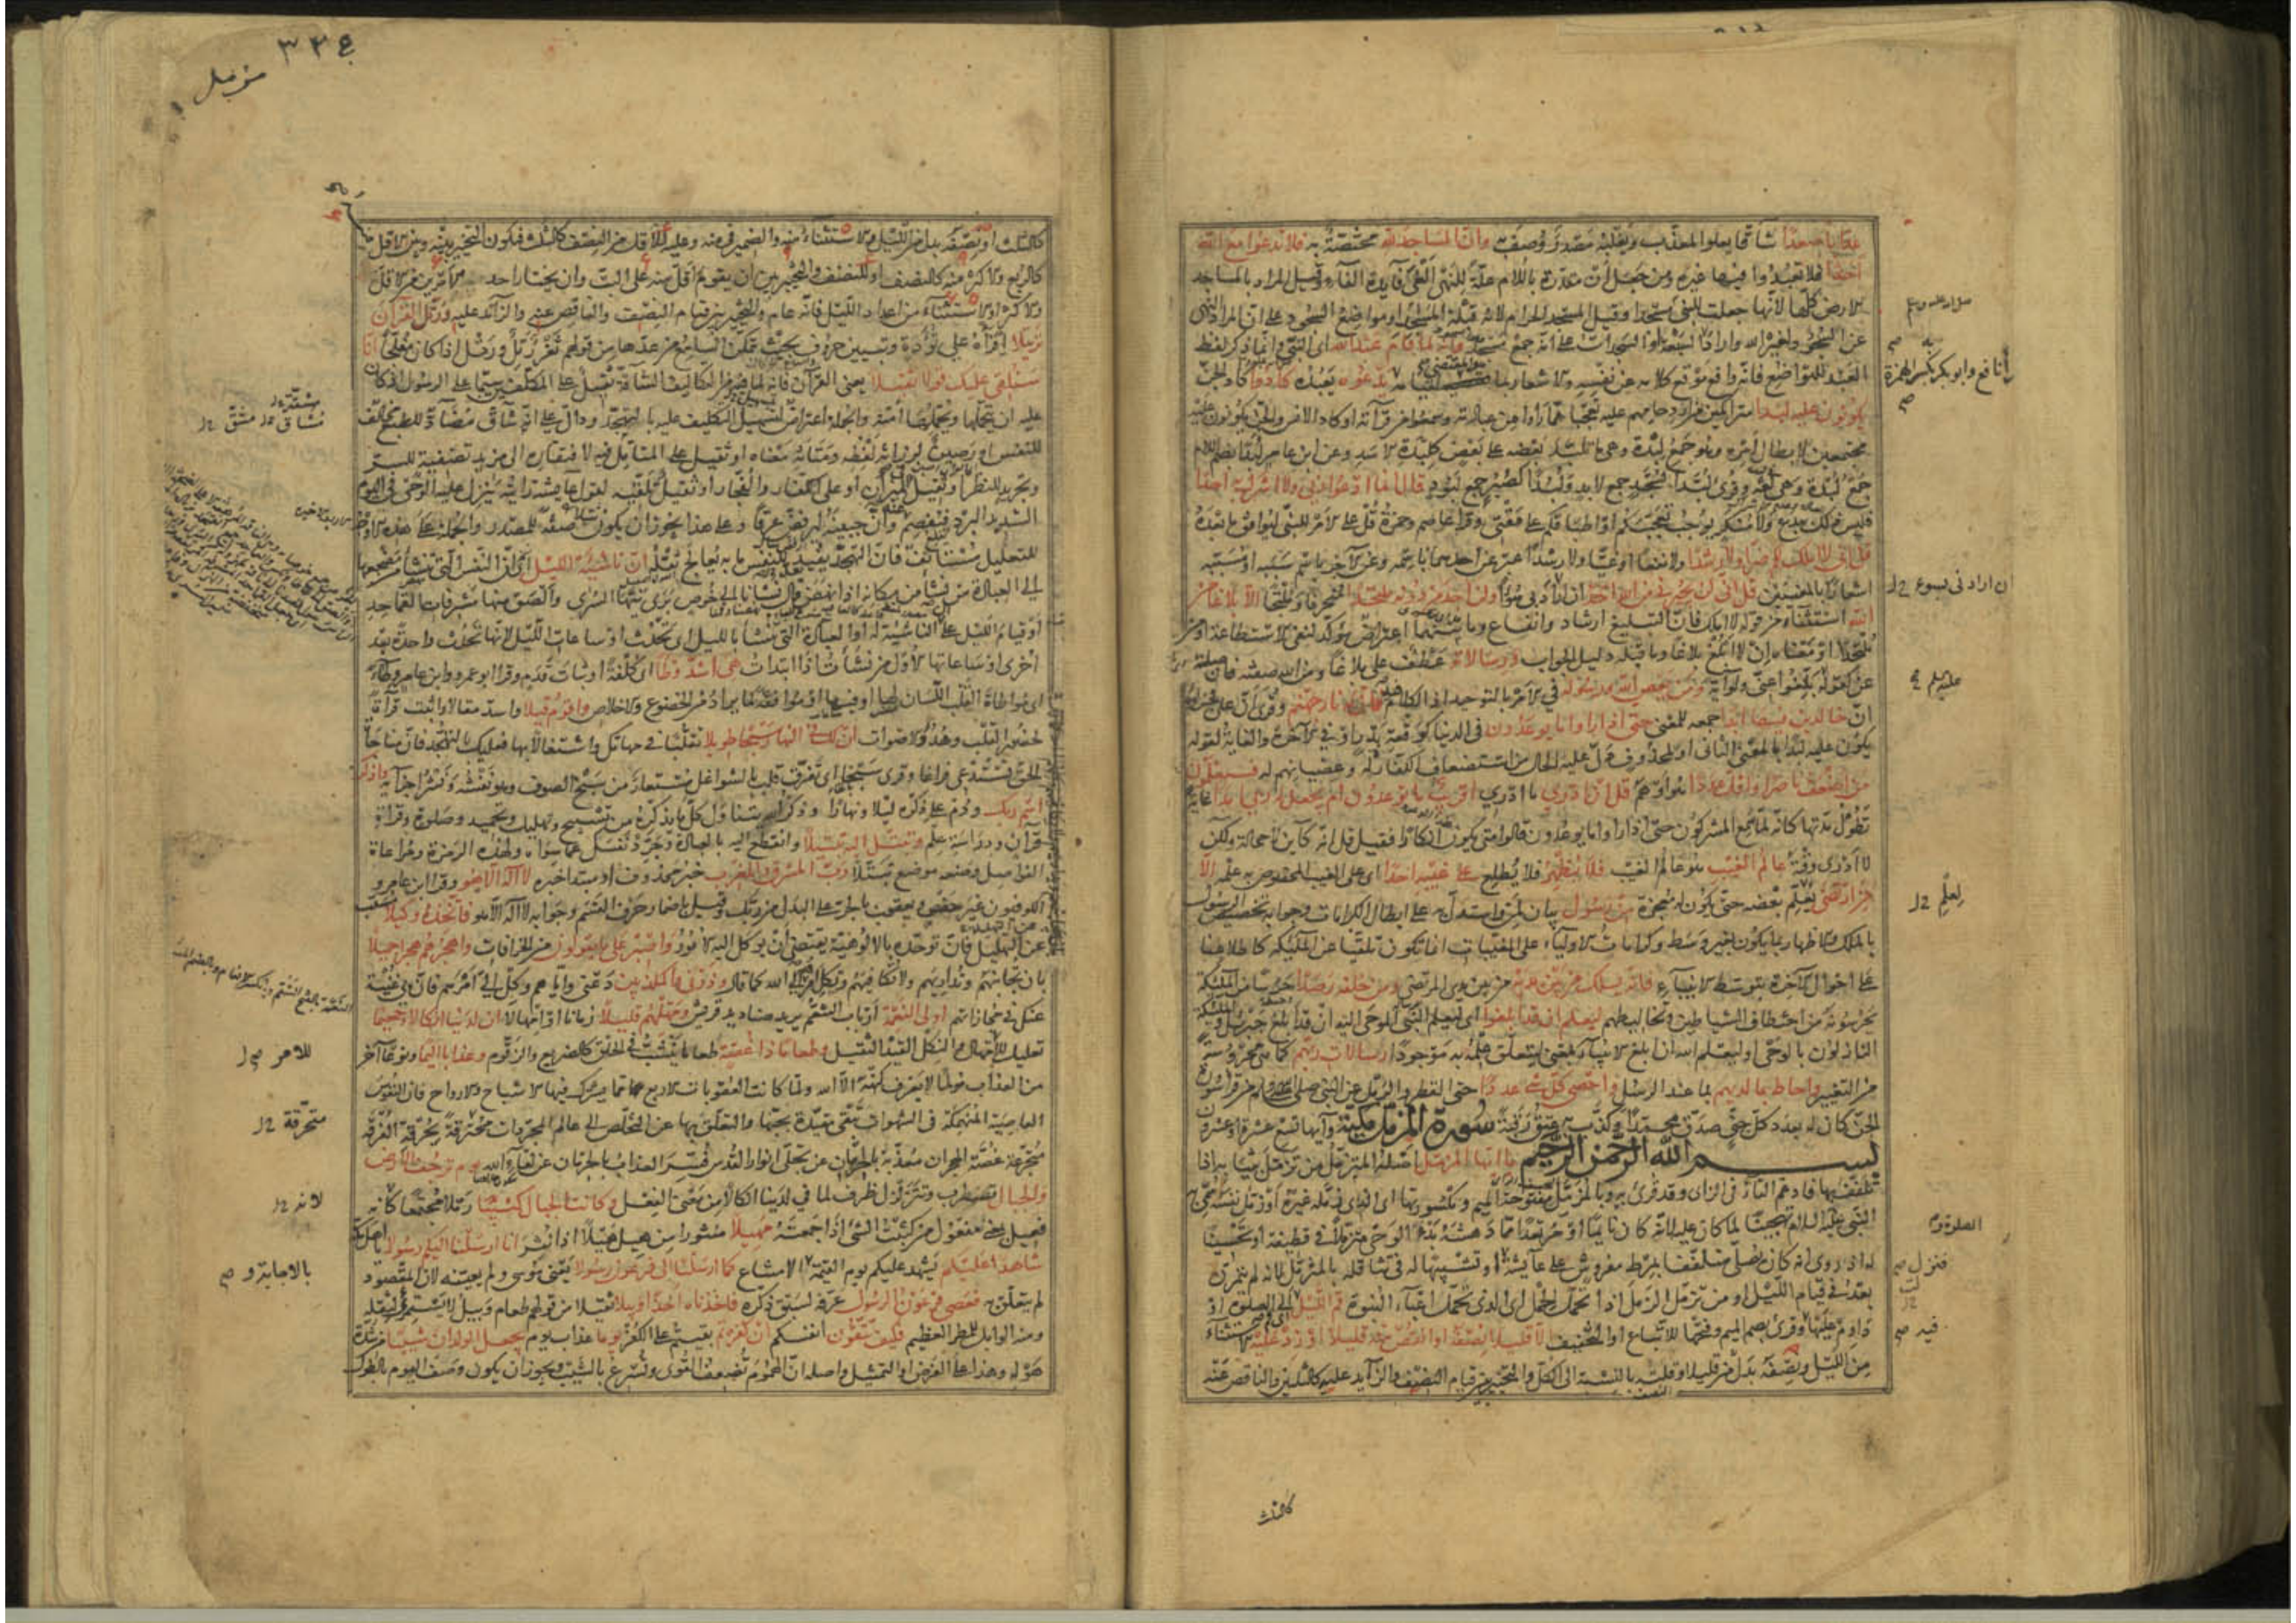 عذابا صعدا شاقا يعلو المعذب ويغلبه مصدر وصف به وان المساجد لله مختصة به فلا تدعوا مع الله
احدا فلا تعبدوا فيها غيره ومن جعل ان مقدرة باللام علة للنهى الغى فايدة الفاء وقيل المراد بالمساجد
الارض كلها لانها جعلت للنبى مسجدا وقيل المسجد الحرام لانه قبلة المساجد ومواضع السجود على ان المراد النهى
عن السجود لغير الله واراد السبعة او السجدات على انه جمع مسجد وانه لما قام عبد الله اى النبى وانما ذكر لفظ
العبد للتواضع فانه واقع موقع كلامه عن نفسه والاشعار بما يدعوه يعبده كادوا كاد الجن
يكونون عليه لبدا متراكمين من ازدحامهم عليه تعجبا مما راوا من عبادته وسمعوا من قرآته او كاد الانس والجن يكونون عليه
مجتمعين لابطال امره وهو جمع لبدة وهى ما تلبد بعضه على بعض كلبدة الاسد وعن ابن عامر لبدا بضم اللام
جمع لبدة وهى لغة وقرئ لبدا كسجد جمع لابد ولبدا كصبر جمع لبود قل انما ادعو ربى ولا اشرك به احدا
فليس ذلك ببدع ولا منكر يوجب تعجبكم او اطباقكم على مقتى وقرا عاصم وحمزة قل على الامر للنبى ليوافق ما بعده
قل انى لا املك لكم ضرا ولا رشدا ولا نفعا او غيا ولا رشدا عبر عن احدهما باسمه وعن الآخر باسم سببه او مسببه
اشعارا بالمعنيين قل انى لن يجيرنى من الله احد ان اراد بى سوءا ولن اجد من دونه ملتحدا منحرفا وملتجا الا بلاغا من
الله استثناء من قوله لا املك فان التبليغ ارشاد وانفاع وما بينهما اعتراض مؤكد لنفى الاستطاعة او من
ملتحدا او معناه ان لا ابلغ بلاغا وما قبله دليل الجواب ورسالاته عطف على بلاغا ومن الله صفته فان صلته
عن كقوله بلغوا عنى ولو آية ومن يعص الله ورسوله في الامر بالتوحيد اذ الكلام فيه فان له نار جهنم وقرئ فان على فجزاؤه
ان خالدين فيها ابدا جمعه للمعنى حتى اذا راوا ما يوعدون فى الدنيا كوقعة بدر او في الآخرة والغاية لقوله
يكونون عليه لبدا بالمعنى الثانى او لمحذوف دل عليه الحال من استضعاف الكفار له وعصيانهم له فسيعلمون
من اضعف ناصرا واقل عددا هو او هم قل ان ادري ما ادري اقريب ما توعدون ام يجعل له ربي امدا غاية
تطول مدتها كانه لما سمع المشركون حتى اذا راوا ما يوعدون قالوا متى يكون انكارا فقيل قل انه كاين لا محالة ولكن
لا ادرى وقته عالم الغيب هو عالم الغيب فلا يظهر فلا يطلع على غيبه احدا اى على الغيب المخصوص به علمه الا
من ارتضى يعلم بعضه حتى يكون له معجزة من رسول بيان لمن واستدل به على ابطال الكرامات وجوابه تخصيص الرسول
بالملك والاظهار بما يكون بغير وسط وكرامات الاولياء على المغيبات انما تكون تلقيا عن الملئكة كاطلاعنا
على احوال الآخرة بتوسط الانبياء فانه يسلك من بين يديه من بين يدى المرتضى ومن خلفه رصدا حرسا من الملئكة
يحرسونه من اختطاف الشياطين وتخاليطهم ليعلم ان قد ابلغوا اى ليعلم النبى الموحى اليه ان قد ابلغ جبريل والملئكة
النازلون بالوحى او ليعلم الله ان ابلغ الانبياء بمعنى ليتعلق علمه به موجودا رسالات ربهم كما هى محروسة
من التغيير واحاط بما لديهم بما عند الرسل واحصى كل شئ عددا حتى القطر والرمل عن النبى صلى الله عليه وسلم من قرا سورة
الجن كان له بعدد كل جنى صدق محمدا وكذب به عتق رقبة سورة المزمل مكية وآيها تسع عشرة او عشرون
بسم الله الرحمن الرحيم يا ايها المزمل اصله المتزمل من تزمل بثيابه اذا
تلفف بها فادغم التاء فى الزاى وقد قرئ به وبالمزمل مفتوحة الميم ومكسورتها اى الذى زمله غيره او زمل نفسه سمى به
النبى عليه السلام تهجينا لما كان عليه لانه كان نايما او مرتعدا مما دهشه بدء الوحى متزملا في قطيفة او تحسينا
له اذ روى انه كان يصلى متلففا بمرط مفروش على عايشة او تشبيها له فى تثاقله بالمتزمل لانه لم يتمرن
بعد فى قيام الليل او من تزمل الزمل اذا تحمل الحمل اى الذى تحمل اعباء النبوة قم الليل اى الى الصلوة او
داوم عليها وقرئ بضم الميم وفتحها للاتباع او التخفيف الا قليلا نصفه او انقص منه قليلا او زد عليه الاستثناء
من الليل ونصفه بدل من قليلا وقلته بالنسبة الى الكل والتخيير بين قيام النصف والزايد عليه كالثلثين والناقص عنه
كالثلث
صلى الله عليه وسلم
نافع وابو بكر بكسر الهمزة
ان اراد بى سوء
عليه
ليعلم
الصلوة
فنزل
فيه
٣٢٤
مزمل
كالثلث او نصفه بدل من الليل والاستثناء منه والضمير في منه وعليه للاقل من النصف كالثلث فيكون التخيير بينه وبين الاقل منه
كالربع والاكثر منه كالنصف او للنصف والتخيير بين ان يقوم اقل منه على البت وان يختار احد الامرين من الاقل
والاكثر او الاستثناء من اعداد الليل فانه عام والتخيير بين قيام النصف والناقص عنه والزائد عليه ورتل القرآن
ترتيلا اقرأه على تؤدة وتبيين حروف بحيث يتمكن السامع من عدها من قولهم ثغر رتل ورتل اذا كان مفلجا انا
سنلقى عليك قولا ثقيلا يعنى القرآن فانه لما فيه من التكاليف الشاقة ثقيل على المكلفين سيما على الرسول اذ كان
عليه ان يتحملها ويحملها امته والجملة اعتراض لتسهيل التكليف عليه بالتهجد ودال على انه شاق مضاد للطبع مخالف
للنفس او رصين لرزانة لفظه ومتانة معناه او ثقيل على المتأمل فيه لافتقاره الى مزيد تصفية للسر
وتجريد للنظر او ثقيل في الميزان او على الكفار والفجار او ثقيل تلقيه لقول عايشة رايته ينزل عليه الوحى في اليوم
الشديد البرد فيفصم عنه وان جبينه ليرفض عرقا وعلى هذا يجوز ان يكون صفة للمصدر والجملة على هذه الاوجه
للتعليل مستانفة فان التهجد يعد للنفس ما به يعالج ثقله ان ناشئة الليل ان النفس التى تنشأ من مضجعها
الى العبادة من نشأ من مكانه اذا نهض قال نشانا الى خوص برى نيها السرى والصق منها مشرفات القماحد
او قيام الليل على ان الناشئة له او العبادة التى تنشأ بالليل اى تحدث او ساعات الليل لانها تحدث واحدة بعد
اخرى او ساعاتها الاول من نشأت اذا ابتدات هى اشد وطأ اى كلفة او ثبات قدم وقرا ابو عمرو وابن عامر وطاء
اى مواطاة القلب اللسان لها او فيها او موافقة لما يراد من الخضوع والاخلاص واقوم قيلا واسد مقالا او اثبت قرآة
لحضور القلب وهدو الاصوات ان لك فى النهار سبحا طويلا تقلبا في مهامك واشتغالا بها فعليك بالتهجد فان مناجاة
الحق تستدعى فراغا وقرى سبخا اى تفرق قلب بالشواغل مستعار من سبخ الصوف وهو نفشه ونشر اجزائه واذكر
اسم ربك ودم على ذكره ليلا ونهارا وذكر الله يتناول كل ما يذكر به من تسبيح وتهليل وتحميد وصلوة وقراة
قرآن ودراسة علم وتبتل اليه تبتيلا وانقطع اليه بالعبادة وجرد نفسك عما سواه ولهذه الرمزة ومراعاة
الفواصل وضعه موضع تبتلا رب المشرق والمغرب خبر محذوف او مبتدا خبره لا اله الا هو وقرا ابن عامر و
الكوفيون غير حفص ويعقوب بالجر على البدل من ربك وقيل باضمار حرف القسم وجوابه لا اله الا هو فاتخذه وكيلا مسبب
عن التهليل فان توحده بالالوهية يقتضى ان يوكل اليه الامور واصبر على ما يقولون من الخرافات واهجرهم هجرا جميلا
بان تجانبهم وتداريهم ولا تكافيهم وتكل امرهم الى الله كما قال وذرنى والمكذبين دعنى واياهم وكل الى امرهم فان بى غنية
عنك في مجازاتهم اولى النعمة ارباب التنعم يريد صناديد قريش ومهلهم قليلا زمانا او امهالا ان لدينا انكالا وجحيما
تعليل للامر والنكل القيد الثقيل وطعاما ذا غصة طعاما ينشب في الحلق كالضريع والزقوم وعذابا اليما ونوعا آخر
من العذاب مؤلما لا يعرف كنهه الا الله ولما كانت العقوبات الاربع مما يشترك فيها الاشباح والارواح فان النفوس
العاصية المنهمكة فى الشهوات تبقى مقيدة بحبها والتعلق بها عن التخلص الى عالم المجردات متحرقة بحرقة الفرقة
متجرعة غصة الهجران معذبة بالحرمان عن تجلى انوار القدس فسر العذاب بالحرمان عن لقاء الله يوم ترجف الارض
والجبال تضطرب وتتزلزل ظرف لما في لدينا انكالا من معنى الفعل وكانت الجبال كثيبا رملا مجتمعا كانه
فعيل بمعنى مفعول من كثبت الشئ اذا جمعته مهيلا منثورا من هيل هيلا اذا نثر انا ارسلنا اليكم رسولا يا اهل مكة
شاهدا عليكم يشهد عليكم يوم القيمة بالامتناع كما ارسلنا الى فرعون رسولا يعنى موسى ولم يعينه لان المقصود
لم يتعلق به فعصى فرعون الرسول عرفه لسبق ذكره فاخذناه اخذا وبيلا ثقيلا من قولهم طعام وبيل لا يستمرئ لثقله
ومنه الوابل للمطر العظيم فكيف تتقون انفسكم ان كفرتم بقيتم على الكفر يوما عذاب يوم يجعل الولدان شيبا من شدة
هوله وهذا على الفرض او التمثيل واصله ان الهموم تضعف القوى وتسرع بالشيب ويجوز ان يكون وصف اليوم بالطول
للامر
متحرقة
لانه
بالاجابة و